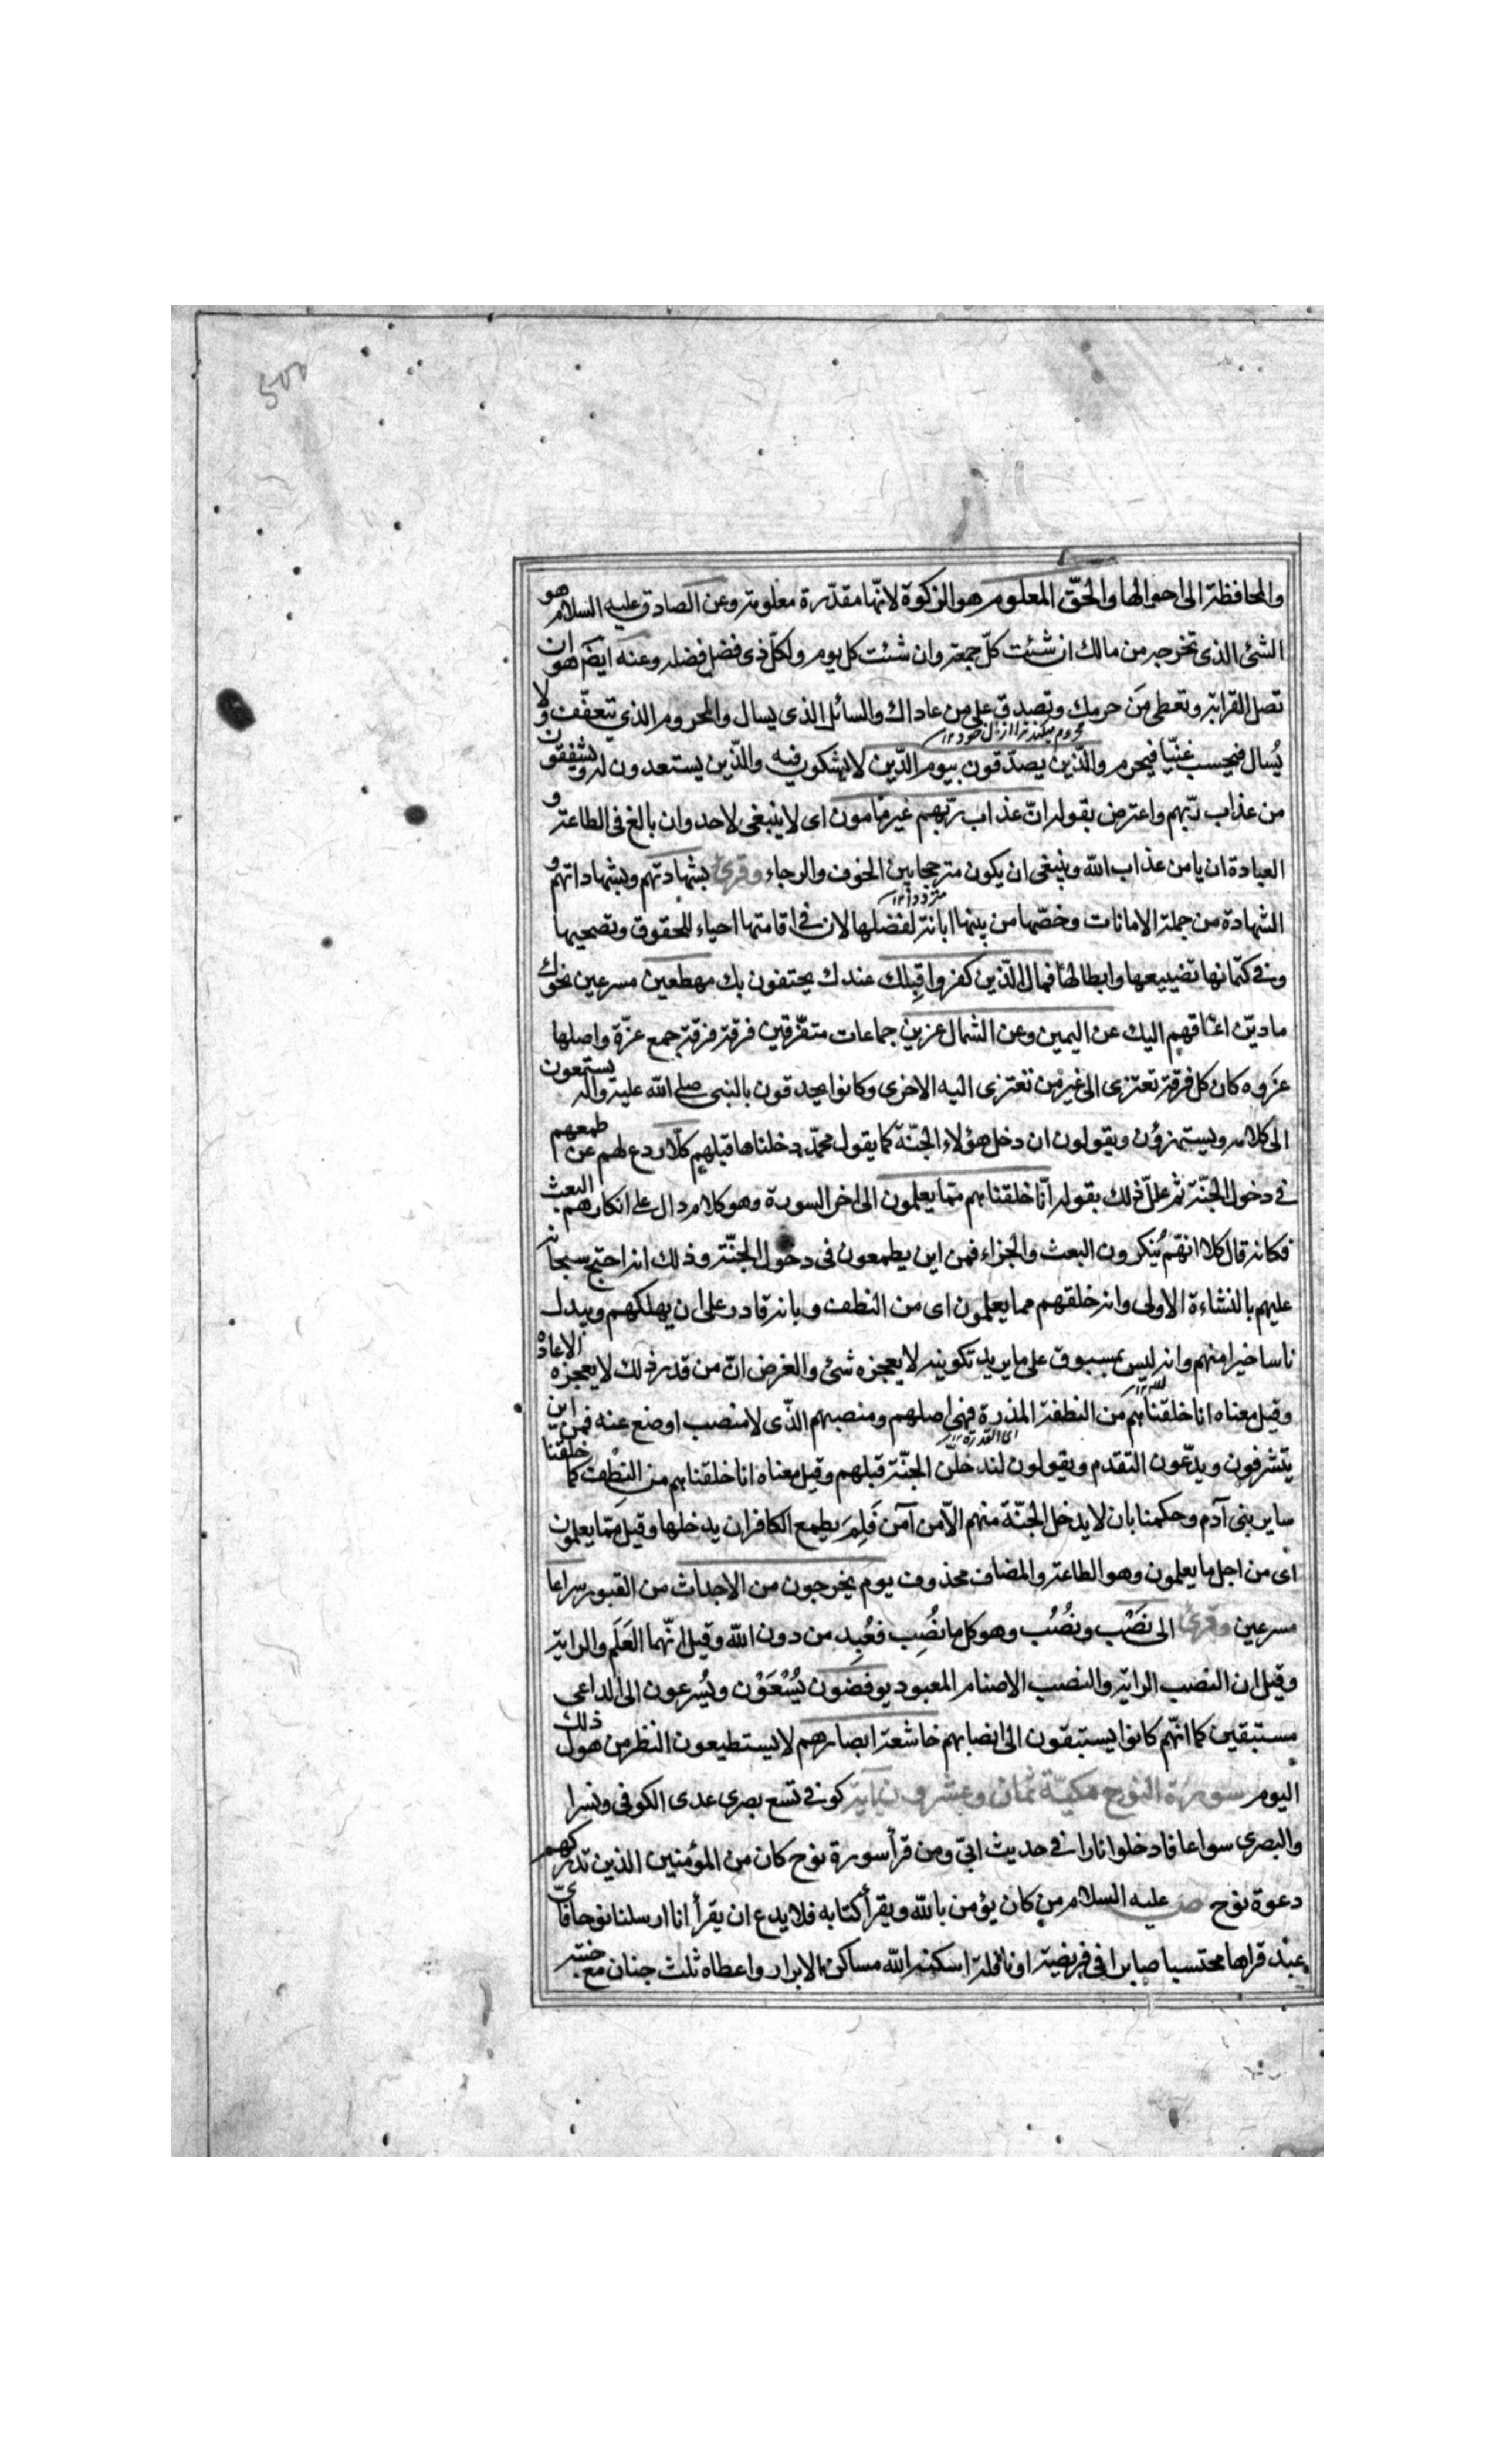 500
والمحافظة الى احوالها والحقّ المعلوم هو الزكوة لانّها مقدّرة معلومة وعن الصادق عليه السلام هو
الشئ الذى تخرجه من مالك ان شئت كلّ جمعة وان شئت كل يوم ولكلّ ذى فضل فضله وعنه ايضم هو ان
تصل القرابة وتعطى مَن حرمك وتصدق على من عاداك والسائل الذى يسال والمحروم الذى يتعفّف ولا
يُسال فيحسب غنيّا فيحرم والّذين يصدّقون بيوم الدّين لا يشكون فيه والّذين يستعدون له ويشفقون
من عذاب ربّهم واعترض بقوله انّ عذاب ربّهم غير مامون اى لا ينبغى لاحد وان بالغ فى الطاعة و
العبادة ان يامن عذاب الله وينبغى ان يكون مترجحا بين الخوف والرجاء وقرئ بشهادتهم وبشهاداتهم و
مترددا ١٢
الشهادة من جملة الامانات وخصّها من بينها ابانة لفضلها لان فى اقامتها احياء للحقوق وتصحيها
وفى كتمانها تضييعها وابطالها فمال الّذين كفروا قِبلك عندك يحتفون بك مهطعين مسرعين نحوك
مادين اعناقهم اليك عن اليمين وعن الشمال عزين جماعات متفرّقين فرقة فرقة جمع عزّة واصلها
عزوه كان كل فرقة تعتزى الى غير من تعتزى اليه الاخرى وكانوا يحدقون بالنبى صلى الله عليه واله يستمعون
الى كلامه ويستهزؤن ويقولون ان دخل هؤلاء الجنّة كما يقول محمّد دخلناها قبلهم كلّا ردع لهم عن طمعهم
فى دخول الجنّة ثم علل ذلك بقوله انّا خلقناهم ممّا يعلمون الى اخر السورة وهو كلام دال على انكارهم البعث
فكانه قال كلا انهّم يُنكرون البعث والجزاء فمن اين يطمعون فى دخول الجنّة وذلك انه احتج سبحانه
عليهم بالنشاءة الاولى وانه خلقهم مما يعلمون اى من النطف وبانه قادر على ان يهلكهم ويبدل
ناسا خيرا منهم وانه ليس بمسبوق على ما يريد تكوينه لا يعجزه شئ والغرض انّ من قدر ذلك لا يعجزه الاعادة
وقيل معناه انا خلقناهم من النطفة المذرة فهى اصلهم ومنصبهم الذّى لا منصب اوضع عنه فمن اين
اى القذرة ١٢
يتشرفون ويدّعون التقدم ويقولون لندخلنّ الجنّة قبلهم وقيل معناه انا خلقناهم من النطف كما خلقنا
ساير بنى آدم وحكمنا بان لا يدخل الجنّة منهم الّا من آمن فَلِمَ يطمع الكافر ان يدخلها وقيل ممّا يعلمون
اى من اجل ما يعلمون وهو الطاعة والمضاف محذوف يوم يخرجون من الاجداث من القبور سراعا
مسرعين وقرئ الى نَصْب ونُصُب وهو كل ما نُصِب فعُبِد من دون الله وقيل انّهما العَلَم والراية
وقيل ان النصب الراية والنصب الاصنام المعبود يوفضون يُسْعَوْن ويُسرعون الى الداعى
مستبقين كما انّهم كانوا يستبقون الى انصابهم خاشعة ابصارهم لا يستطيعون النظر من هول ذلك
اليوم سورة النوح مكيّة ثمان وعشرون آية كوفى تسع بصرى عدى الكوفى ونسرا
والبصرى سواعا فادخلوا نارا فى حديث ابىّ ومن قرأ سورة نوح كان من المؤمنين الذين تدركهم
دعوة نوح ص عليه السلام من كان يؤمن بالله ويقرأ كتابه فلا يدع ان يقرأ انا ارسلنا نوحا فاىّ
عبد قراها محتسبا صابرا فى فريضة او نافلة اسكنه الله مساكن الابرار واعطاه ثلث جنان مع جنته